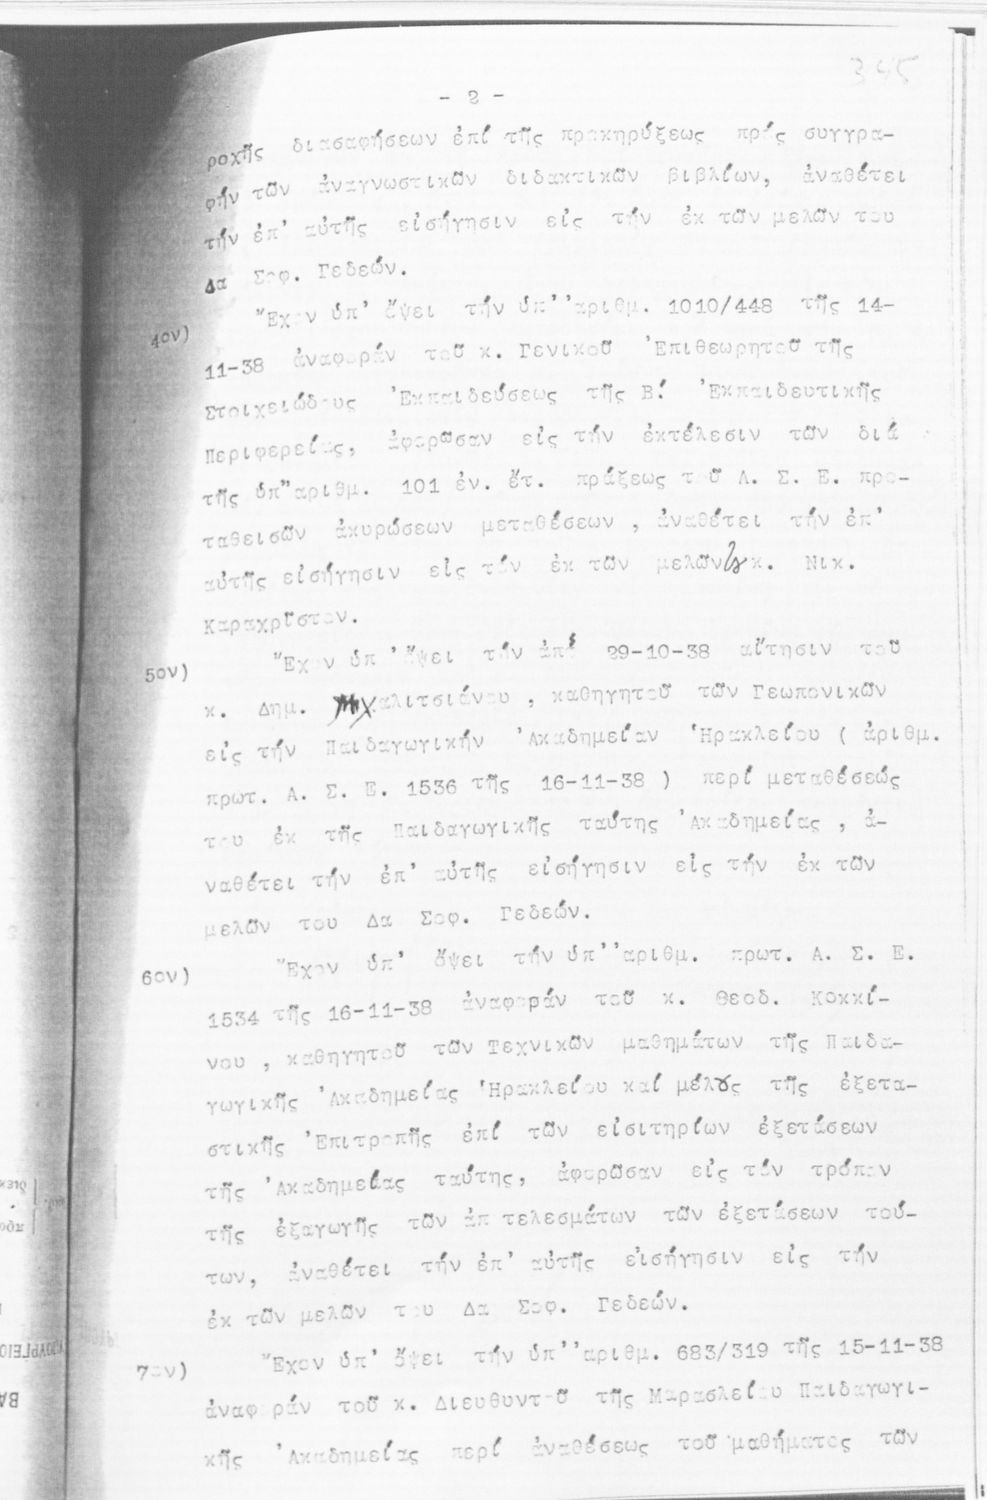 345
- 2 -
ροχῆς διασαφήσεων ἐπί τῆς προκηρύξεως πρός συγγρα-
φήν τῶν ἀναγνωστικῶν διδακτικῶν βιβλίων, ἀναθέτει
τήν ἐπ' αὐτῆς εἰσήγησιν εἰς τήν ἐκ τῶν μελῶν του
Δα Σοφ. Γεδεών.
4ον) Ἔχον ὑπ' ὄψει τήν ὑπ' 'αριθμ. 1010/448 τῆς 14-
11-38 ἀναφοράν τοῦ κ. Γενικοῦ Ἐπιθεωρητοῦ τῆς
Στοιχειώδους Ἐκπαιδεύσεως τῆς Β΄ Ἐκπαιδευτικῆς
Περιφερείας, ἀφορῶσαν εἰς τήν ἐκτέλεσιν τῶν διά
τῆς ὑπ''αριθμ. 101 ἐν. ἔτ. πράξεως τοῦ Α. Σ. Ε. προ-
ταθεισῶν ἀκυρώσεων μεταθέσεων , ἀναθέτει τήν ἐπ'
αὐτῆς εἰσήγησιν εἰς τόν ἐκ τῶν μελῶν κ. Νικ.
Καραχρῖστον.
5ον) Ἔχον ὑπ 'ὄψει τήν ἀπό 29-10-38 αἴτησιν τοῦ
κ. Δημ. Μιχαλιτσιάνου , καθηγητοῦ τῶν Γεωπονικῶν
εἰς τήν Παιδαγωγικήν Ἀκαδημείαν Ἡρακλείου ( ἀριθμ.
πρωτ. Α. Σ. Ε. 1536 τῆς 16-11-38 ) περί μεταθέσεώς
του ἐκ τῆς Παιδαγωγικῆς ταύτης Ἀκαδημείας , ἀ-
ναθέτει τήν ἐπ' αὐτῆς εἰσήγησιν εἰς τήν ἐκ τῶν
μελῶν του Δα Σοφ. Γεδεών.
6ον) Ἔχον ὑπ' ὄψει τήν ὑπ' 'αριθμ. πρωτ. Α. Σ. Ε.
1534 τῆς 16-11-38 ἀναφοράν τοῦ κ. Θεοδ. Κοκκί-
νου , καθηγητοῦ τῶν Τεχνικῶν μαθημάτων τῆς Παιδα-
γωγικῆς Ἀκαδημείας Ἡρακλείου καί μέλους τῆς ἐξετα-
στικῆς Ἐπιτροπῆς ἐπί τῶν εἰσιτηρίων ἐξετάσεων
τῆς Ἀκαδημείας ταύτης, ἀφορῶσαν εἰς τόν τρόπον
τῆς ἐξαγωγῆς τῶν ἀπ τελεσμάτων τῶν ἐξετάσεων τού-
των, ἀναθέτει τήν ἐπ' αὐτῆς εἰσήγησιν εἰς τήν
ἐκ τῶν μελῶν του Δα Σοφ. Γεδεών.
7ον) Ἔχον ὑπ' ὄψει τήν ὑπ' 'αριθμ. 683/319 τῆς 15-11-38
ἀναφοράν τοῦ κ. Διευθυντοῦ τῆς Μαρασλείου Παιδαγωγι-
κῆς Ἀκαδημείας περί ἀναθέσεως τοῦ μαθήματος τῶν